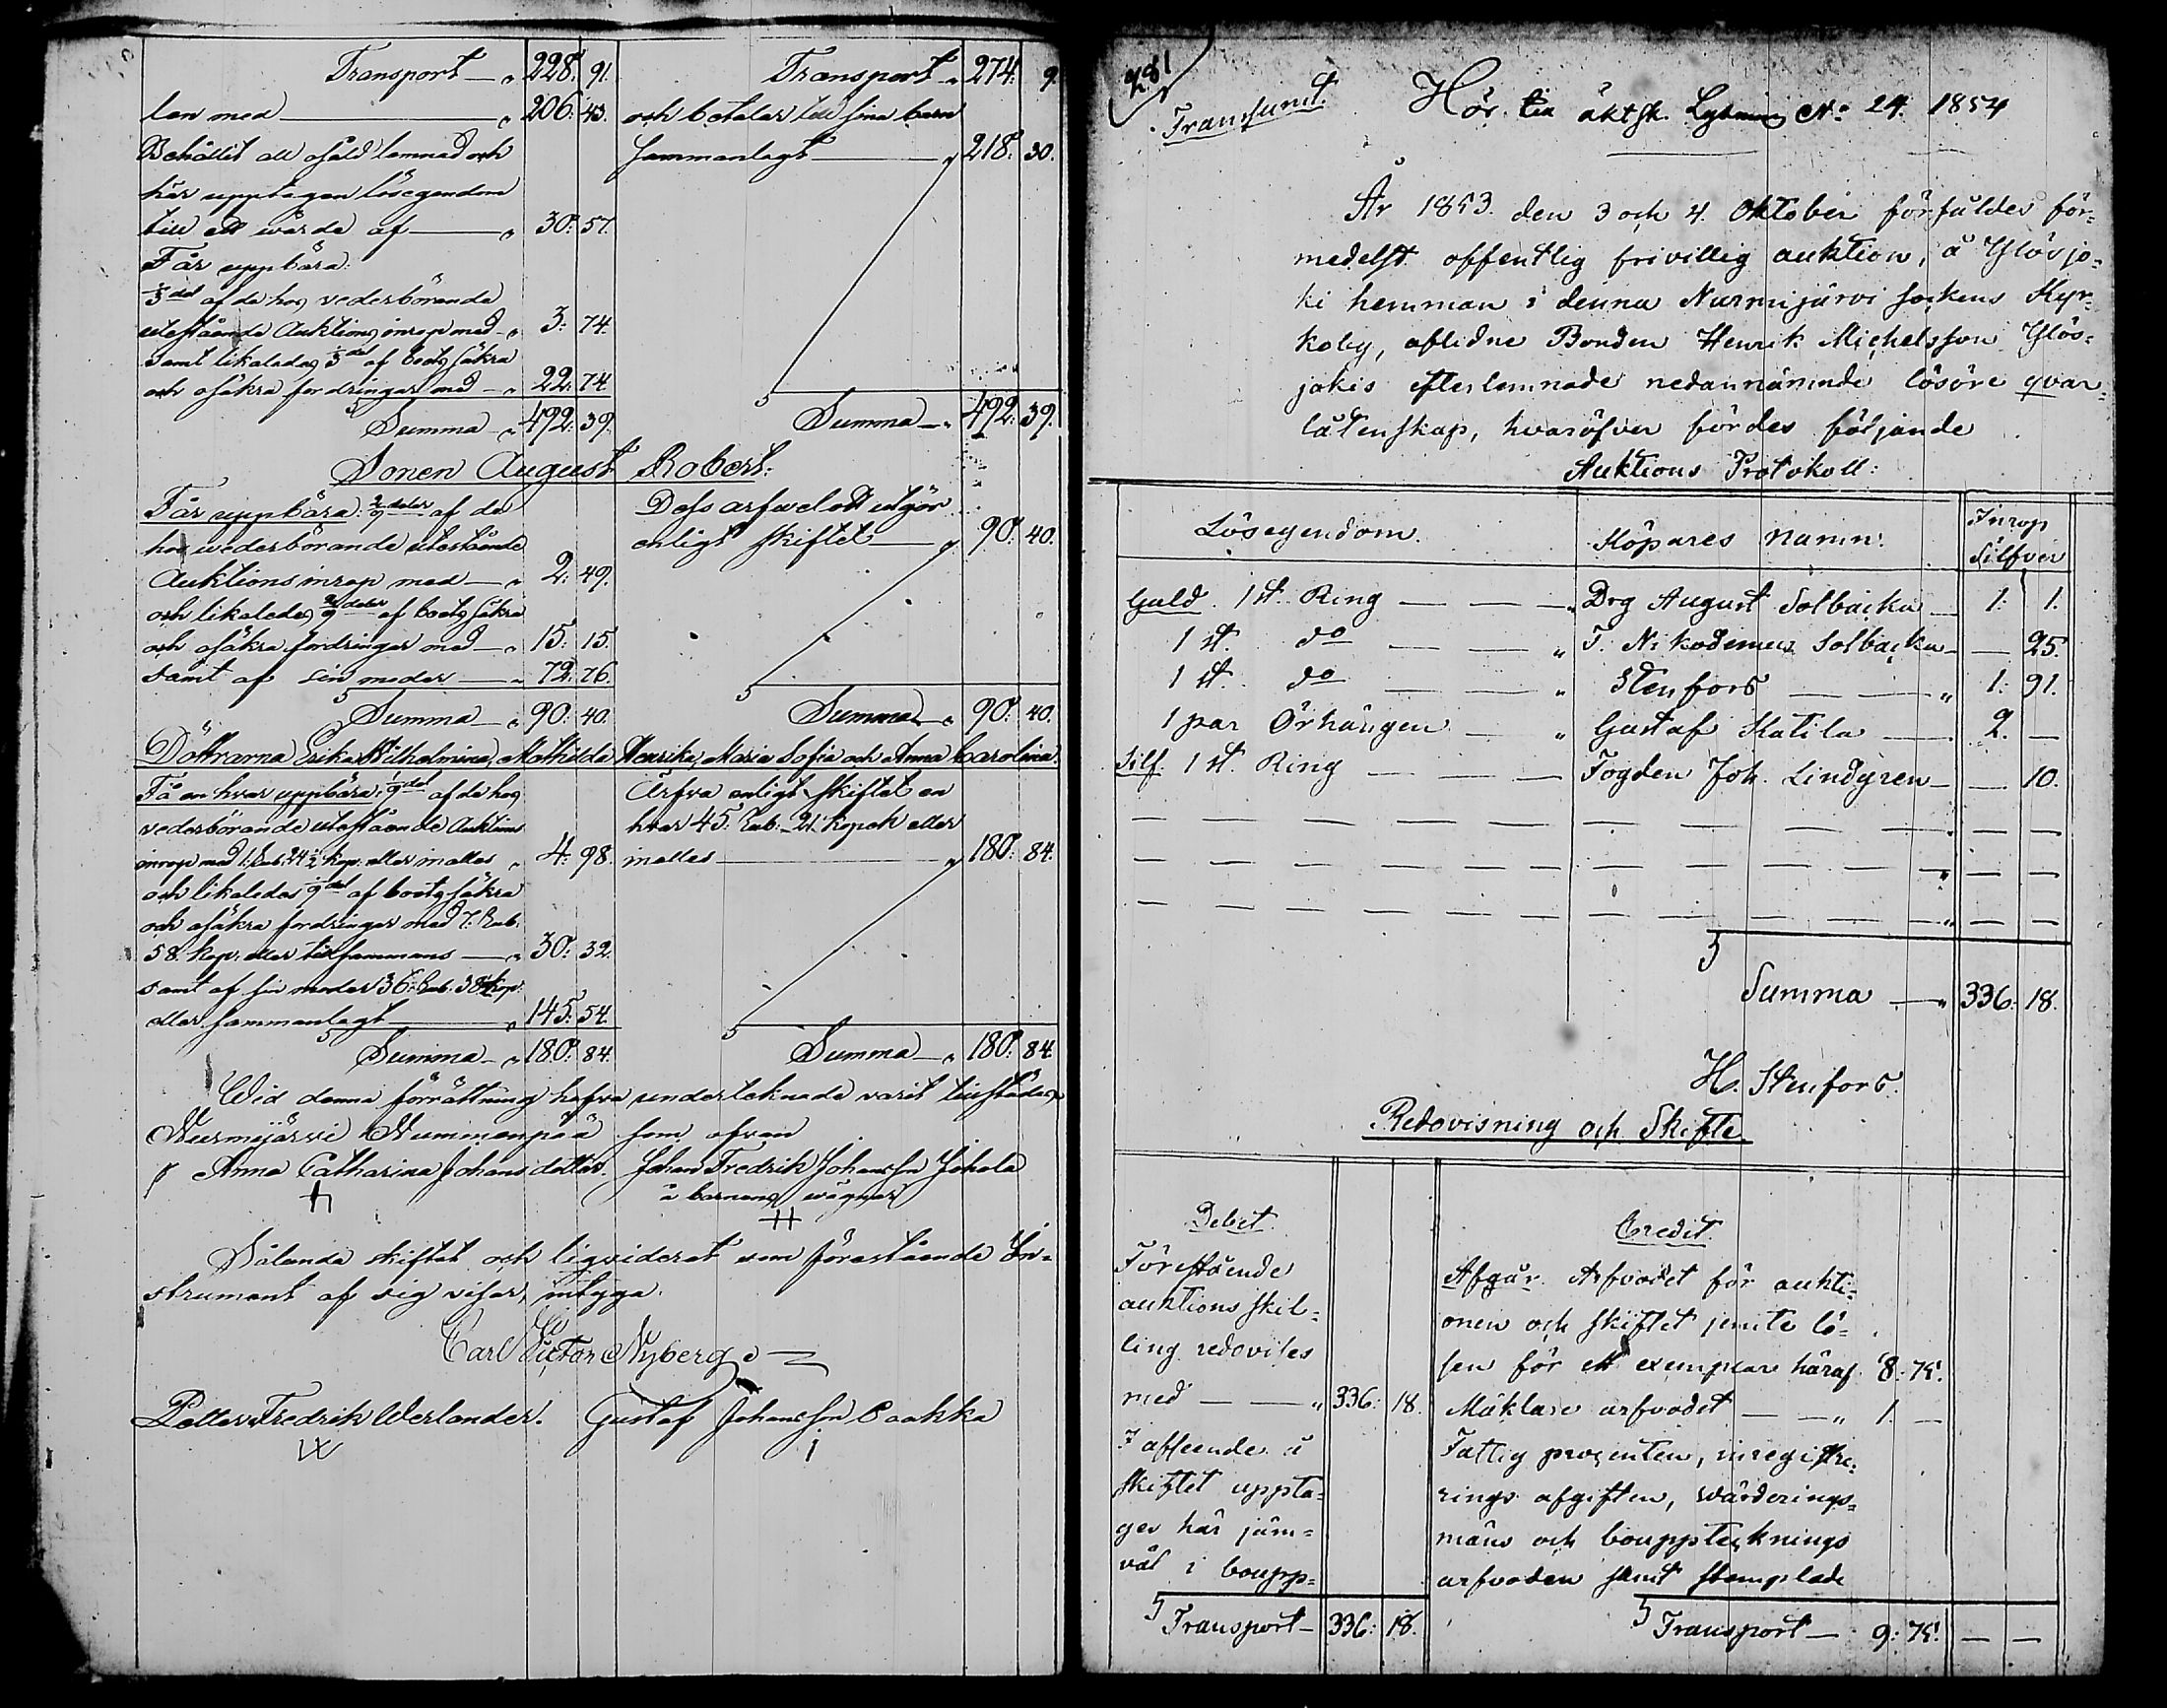 Transport — „ 228. 91.
len med — „ 206. 43.
Behållit all osåld lemnad och
här upptagen lösegendom
till ett wärde af — „ 30. 57.
Får uppbära:
1/3 del af de hos vederbörande
utestående Auktions inrop med „ 3. 74.
samt likaledes 1/3 del af boets säkra
och osäkra fordringar med — „ 22. 74
Summa — „ 492. 39.
Transport — „ 274. 9.
och betalar till sina barn
sammanlagt — „ 218. 30.
Summa — „ 492. 39.
Sonen August Robert:
Får uppbära: 2/9 delar af de
hos wederbörande utestående
Auktionsinrop med — „ 2. 49.
och likaledes 2/9 delar af boets säkra
och osäkra fordringar med — „ 15. 15.
samt af sin moder — „ 72. 76.
Summa — „ 90. 40.
Dess arfvelott utgör
enligt skiftet — „ 90. 40.
Summa — „ 90. 40.
Döttrarna Erika Wilhelmina, Mathilda Henrika, Maria Sofia och Anna Carolina.
Få en hvar uppbära: 1/9 del af de hos
vederbörande utestående Auktions
inrop med 1. Rub. 24 1/2 kop. eller inalles „ 4. 98.
och likaledes 1/9 del af boets säkra
och osäkra fordringar med 7. Rub.
58. kop. eller tillsammans — „ 30. 32.
samt af sin moder 36. Rub. 38 1/2 kop.
eller sammanlagt — „ 145. 54.
Summa — „ 180. 84.
Ärfva enligt skiftet en
hvar 45. Rub. 21. kopek eller
inalles — „ 180. 84.
Summa — „ 180. 84.
Wid denna förrättning hafva undertecknade varit tillstädes,
Nurmijärvi Nummenpää som ofvan
Anna Catharina Johansdotter. Johan Fredrik Johansson Johola
å barnens wägnar
Sålunda skiftat och liqviderat som förestående In=
strument af sig visar, intyga.
Carl Victor Nyberg.
Petter Fredrik Werlander. Gustaf Johansson Paakka
281
Transumt. Hör till äktsk. Lysning No 24. 1854
År 1853. den 3 och 4. Oktober försåldes för=
medelst offentlig frivillig auktion, å Ylösjo=
ki hemman i denna Nurmijärvi sockens Kyr=
koby, aflidne Bonden Henrik Michelsson Ylös=
jokis efterlemnade nedannämnde lösöre qvar=
låtenskap, hvaröfver fördes följande
Auktions Protokoll:
Lösegendom. Köpares namn. Inrop Silfver
Guld. 1 st. Ring — — — „ Drg August Solbacka — 1. 1.
1 st. do — — „ T. Nikodemus Solbacka — — 25.
1 st. do — — „ Stenfors — — „ 1. 91.
1 par Örhängen — „ Gustaf Katila — 2. —
Silf. 1 st. Ring — — — Fogden Joh. Lindgren — — 10.
Summa — „ 336. 18.
H. Stenfors.
Redovisning och Skifte.
Debet.
Förestående
auktions skil=
ling redovises
med — — „ 336. 18.
I afseende å
skiftet uppta=
ges här jäm=
väl i boupp=
Transport — 336. 18.
Credit.
Afgår. Arfvodet för aukti=
onen och skiftet jemte lö=
sen för ett exemplar häraf 8. 75.
Mäklare arfvodet — — „ 1. —
Fattig procenten, inregistre=
rings afgiften, värderings=
mäns och bouppteknings
arfvoden samt stemplade
Transport — 9. 75. — —